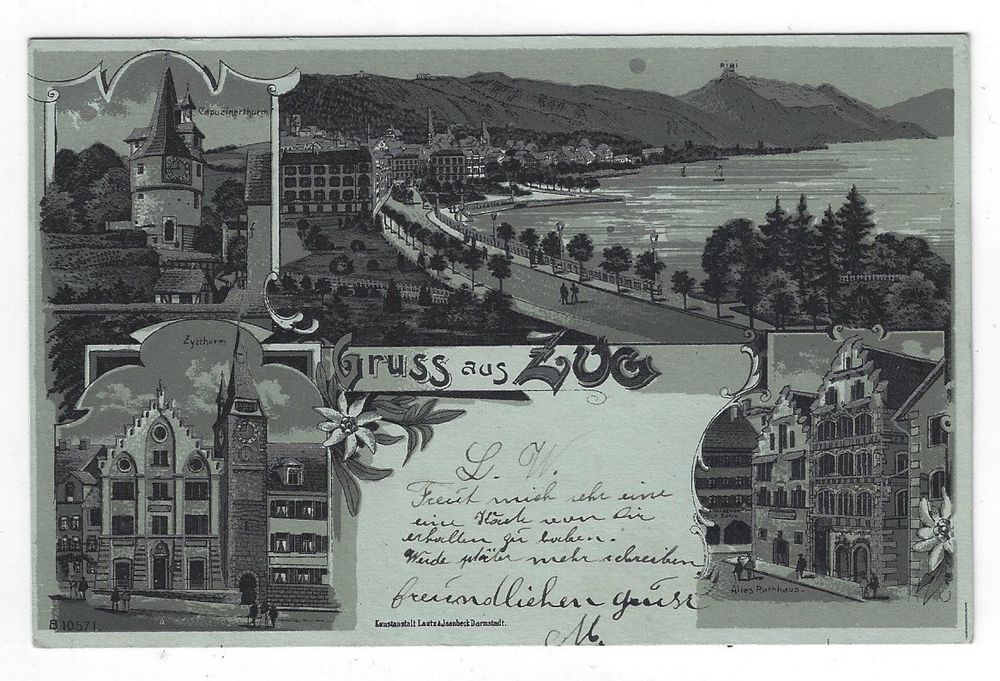 Capuzinerthurm
RIGI
Zytthurm
Gruss aus Zug
L. W.
Freut mich sehr eine
eine Karte von Dir
erhalten zu haben.
Werde später mehr schreiben
freundlichen gruss
M.
Altes Rathhaus.
B 10571.
Kunstanstalt Lautz & Isenbeck Darmstadt.